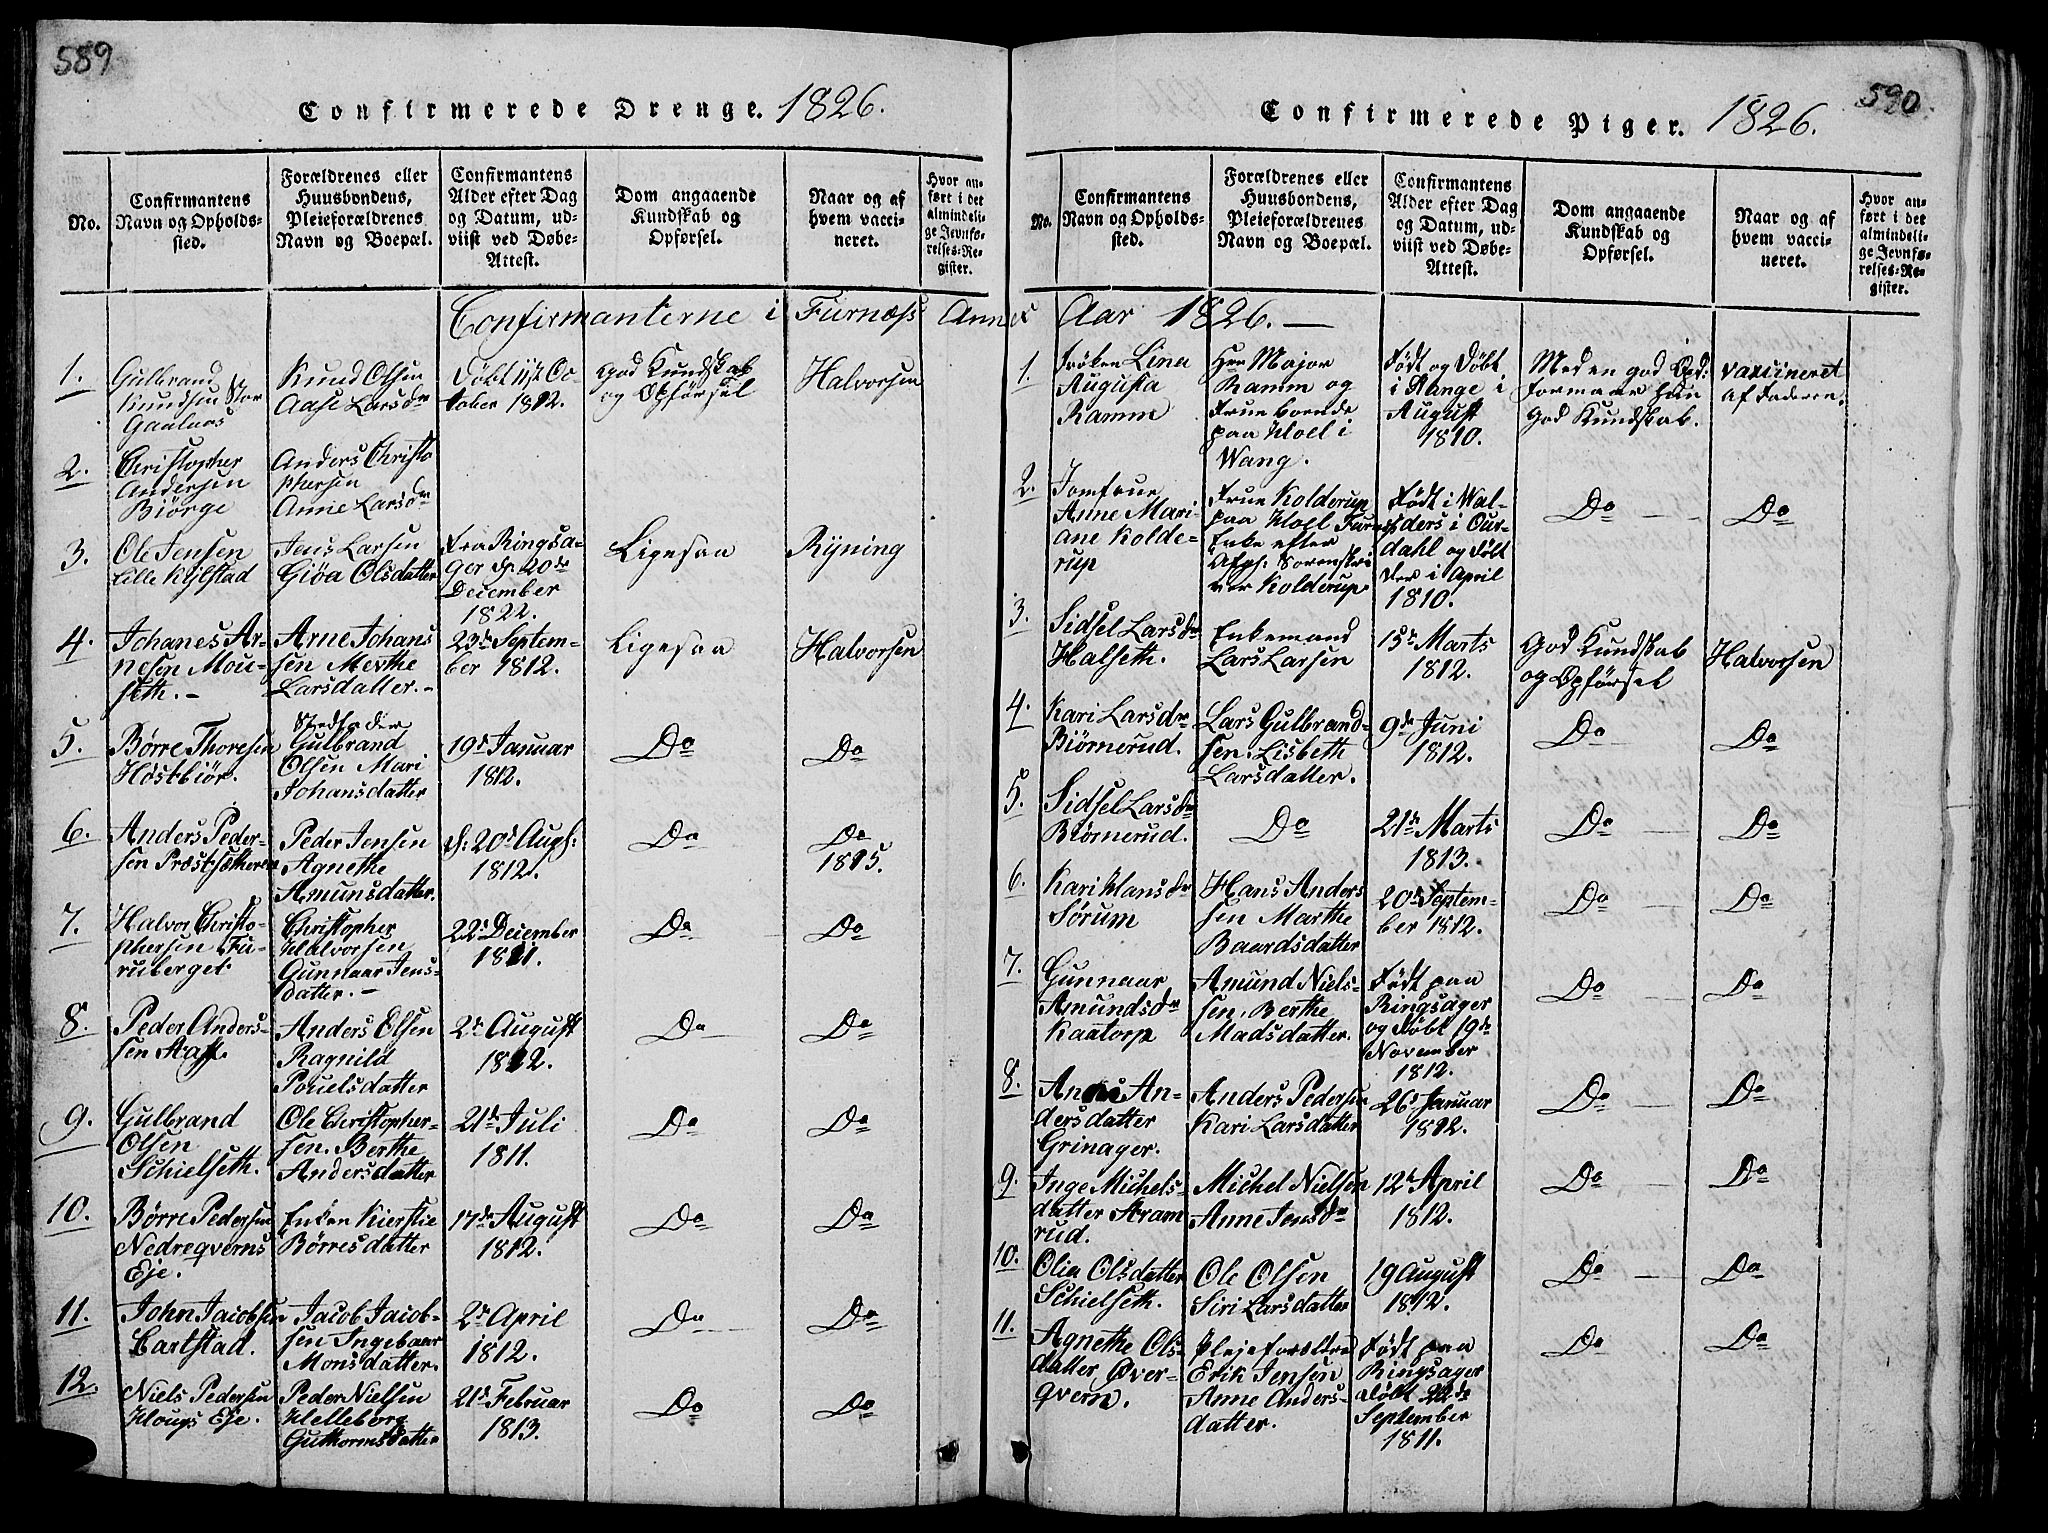 589
Confirmerede Drenge. 1826.
No.
Confirmantens
Navn og Opholds-
sted.
Forældrenes eller
Huusbondens,
Pleieforældrenes
Navn og Boepæl.
Confirmantens
Alder efter Dag
og Datum, ud-
viist ved Døbe-
Attest.
Dom angaaende
Kundskab og
Opførsel.
Naar og af
hvem vacci-
neret.
Hvor an-
ført i det
almindeli-
ge Jevnfø-
relses-Re-
gister.
Confirmanterne i Furnæss Annex
1.
Gulbrand
Knudsen Stor
Knud Olsen
Aase Larsdr
Døbt 11st Oc-
tober 1812.
god Kundskab
og Opførsel
Halvorsen
2.
Christopher
Andersen
Biørge
Anders Christo
phersen
Anne Larsdr
3.
Ole Jensen
Lille Kylstad
Jens Larsen
Giøa Olsdatter
Fra Ringsa-
ger d. 20de
December
1822.
Ligesaa
Ryning
4.
Johanes Ar-
nesen Mou-
seth. -
Arne Johans
sen Merthe
Larsdatter. -
23de Septem-
ber 1812.
Ligesaa
Halvorsen
5.
Børre Thoresen
Høstbiør.
Stedfader
Gulbrand
Olsen Mari
Johansdatter
19d Januar
1812.
Do
Do
6.
Anders Peder-
sen Præstsætheren
Peder Jensen
Agnethe
Amunsdatter.
d: 20d Augs:
1812.
Do
Do
1815.
7.
Halvor Christo-
phersen Fu-
ruberget
Christopher
Halvorsen
Gunnaar Jens-
datter. -
22d December
1811.
Do
Do
8.
Peder Anders-
sen
Anders Olsen
Ragnild
Pouelsdatter
2d August
1812.
Do
Do
9.
Gulbrand
Olsen
Schielseth.
Ole Christopher-
sen. Berthe
Andersdatter
21de Juli
1811.
Do
Do
10.
Børre Pedersen
Nedreqverns
Eje.
Enken Kierstie
Børresdatter
17de August
1812.
Do
Do
11.
John Jacobsen
Cartstad.
Jacob Jacob-
sen Ingebaar
Monsdatter.
2de April
1812.
Do
Do
12.
Niels Pedersen
Hougs Eje.
Peder Nielsen
Helleborg
Guthormsdatter
21d Februar
1813.
Do
Do
590
Confirmerede Piger. 1826.
No.
Confirmantens
Navn og Opholds-
sted.
Forældrenes eller
Huusbondens,
Pleieforældrenes
Navn og Boepæl.
Confirmantens
Alder efter Dag
og Datum, ud-
viist ved Døbe-
Attest.
Dom angaaende
Kundskab og
Opførsel.
Naar og af
hvem vacci-
neret.
Hvor an-
ført i det
almindeli-
ge Jevnfø-
relses-Re-
gister.
Aar 1826. -
1
Frøken Lina
Augusta
Ramm
Her Major
Ramm og
Frue boende
paa Hoel i
Wang.
Født og Døbt
i Stange i
August
1810.
Med en god
formaar hun
God Kundskab.
vaccineret
af Faderen.
2.
Jomfrue
Anne Mari-
ane Kolde-
rup
Frue Kolderup
paa Hoel Furnes
Enke efter
Afg: Sorenskri
ver Kolderup
Født i Wal-
ders i Our-
dahl og Døbt
der i April
1810.
Do
Do
3.
Sidsel Larsdr
Halseth.
Enkemand
Lars Larsen
15de Marts
1812.
God Kundskab
og Opførsel
Halvorsen
4.
Kari Larsdr
Biørnerud.
Lars Gulbrand-
sen. Lisbeth
Larsdatter.
9de Juni
1812.
Do
Do
5.
Sidsel Larsdr
Biørnerud.
Do
21de Marts
1813.
Do
Do
6.
Kari Hansdr
Sørum
Hans Anders
sen Marthe
Baardsdatter
20d Septem-
ber 1812.
Do
Do
7.
Gunnaar
Amundsdr
Kaatorp
Amund Niels-
sen. Berthe
Madsdatter.
Født paa
Ringsager
og Døbt 19de
November
1812.
Do
Do
8.
Anne An-
dersdatter
Grinager.
Anders Pedersen
Kari Larsdatter
26d Januar
1812.
Do
Do
9.
Inge Michels-
datter Aram
rud.
Michel Nielsen
Anne Jensdr
12d April
1812.
Do
Do
10.
Olia Olsdatter
Schielseth.
Ole Olsen
Siri Larsdatter
19 August
1812.
Do
Do
11.
Agnethe Ols-
datter, Øver-
qvern.
Plejeforældre
Erik Jensen
Anne Anders-
datter.
Født paa
Ringsager
Døbt 22de
September
1811.
Do
Do